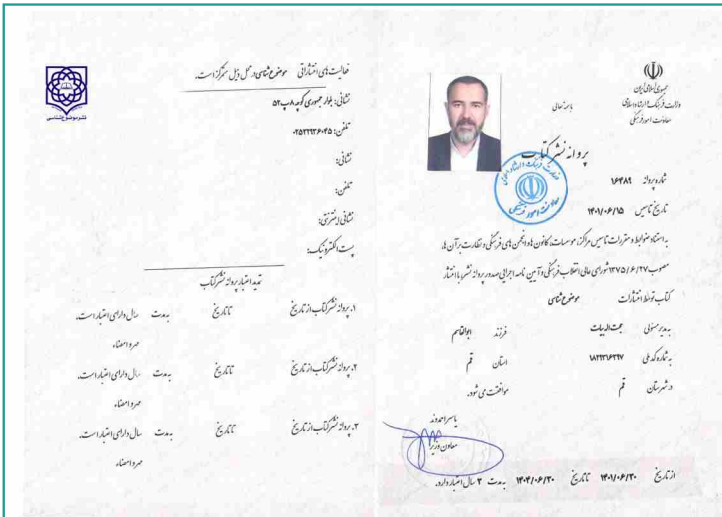 جمهوری اسلامی ایران
وزارت فرهنگ و ارشاد اسلامی
معاونت امور فرهنگی
باسمه تعالی
پروانه نشر کتاب
شماره پروانه ۱۶۴۸۹
تاریخ تاسیس ۱۴۰۱/۰۶/۱۵
به استناد ضوابط و مقررات تاسیس مراکز، موسسات، کانون ها و انجمن های فرهنگی و نظارت بر آن ها،
مصوب ۱۳۷۵/۶/۲۷ شورای عالی انقلاب فرهنگی و آیین نامه اجرایی صدور پروانه نشر، با انتشار
کتاب توسط انتشارات موضوع شناسی
به مدیر مسئولی حجت اله بیات فرزند ابوالقاسم
به شماره کد ملی استان قم
در شهرستان قم موافقت می شود.
یاسر احمدوند
معاون وزیر
از تاریخ ۱۴۰۱/۰۶/۳۰ تا تاریخ ۱۴۰۴/۰۶/۳۰ به مدت ۳ سال اعتبار دارد.
وزارت فرهنگ و ارشاد اسلامی
معاونت امور فرهنگی
نشر موضوع شناسی
فعالیت های انتشاراتی موضوع شناسی در محل ذیل متمرکز است.
نشانی: بلوار جمهوری کوچه ۸ پ ۵۲
تلفن: ۰۲۵۳۲۹۳۶۰۴۵
نشانی:
تلفن:
نشانی اینترنتی:
پست الکترونیک:
تمدید اعتبار پروانه نشر کتاب
۱. پروانه نشر کتاب از تاریخ تا تاریخ به مدت سال دارای اعتبار است.
مهر و امضاء
۲. پروانه نشر کتاب از تاریخ تا تاریخ به مدت سال دارای اعتبار است.
مهر و امضاء
۳. پروانه نشر کتاب از تاریخ تا تاریخ به مدت سال دارای اعتبار است.
مهر و امضاء